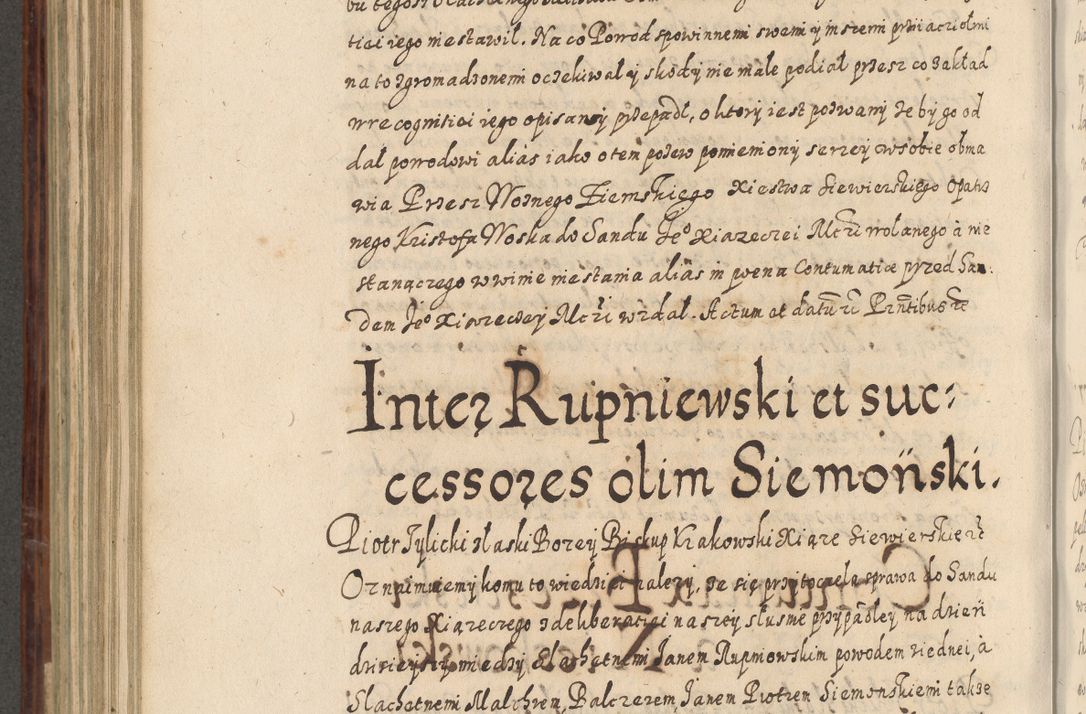 ticiiego niestawil. Na co Powod spowinnemi swemi y inszemi przÿiaciołmi
na to zgromadzonemi oczekiwał y skody nie małe podiał przesz co zakład
w recognitiei iego opisany przepadł, o ktory iest pozwany że by go od
dal powodowi alias iako o tem pozew pomieniony serzey w sobie obma
wia Przesz Woznego Ziemskiego Xiestwa Siewierskiego Opatrz
nego Krisztofa Woska do Sandu Je° Xiazeczei Mczi wołanego a nie
stanączego w winie niestania alias in poena Contumatiae przed San
dem Je° Xiązeczey Mczi wzdal. Actum et datū rc Prntibus rc
Inter Rupniewski et suc-
cessores olim Siemoński.
Piotr Tylicki z laski Bozey Biskup Krakowski Xiąze Siewierskie rc
Oznaimuiemy komu to wiedziei nalezy, że się przytoczeła sprawa do Sandu
naszego Xiązeczego z deliberatiei naszey słusnie przypadłey na dzień
dzisieyszy miedzy Slachetnemi Janem Rupniowskim powodem ziednei, a
Slachetnemi Malchrem, Balczerem, Janem Piotrem Siemonskiemi także